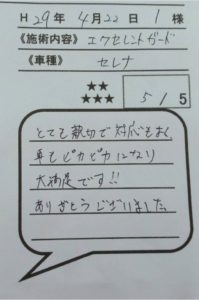 H 29年 4月22日 1 様
《施術内容》 エクセレントガード
《車種》 セレナ
★★
★★★
5 / 5
とても親切で対応もよく
車もピカピカになり
大満足です!!
ありがとうございました